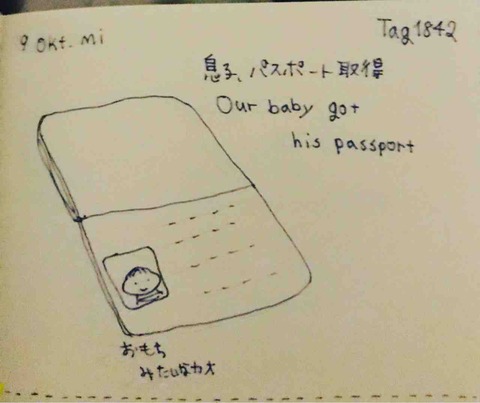 9 Okt. Mi
Tag1842
息子、パスポート取得
Our baby got
his passport
おもち
みたいなカオ